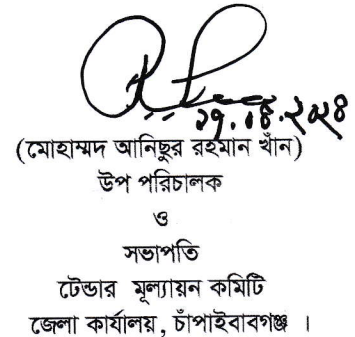 ২৭.০৪.২০২৪
(মোহাম্মদ আনিছুর রহমান খাঁন)
উপ পরিচালক
ও
সভাপতি
টেন্ডার মূল্যায়ন কমিটি
জেলা কার্যালয়, চাঁপাইবাবগঞ্জ ।